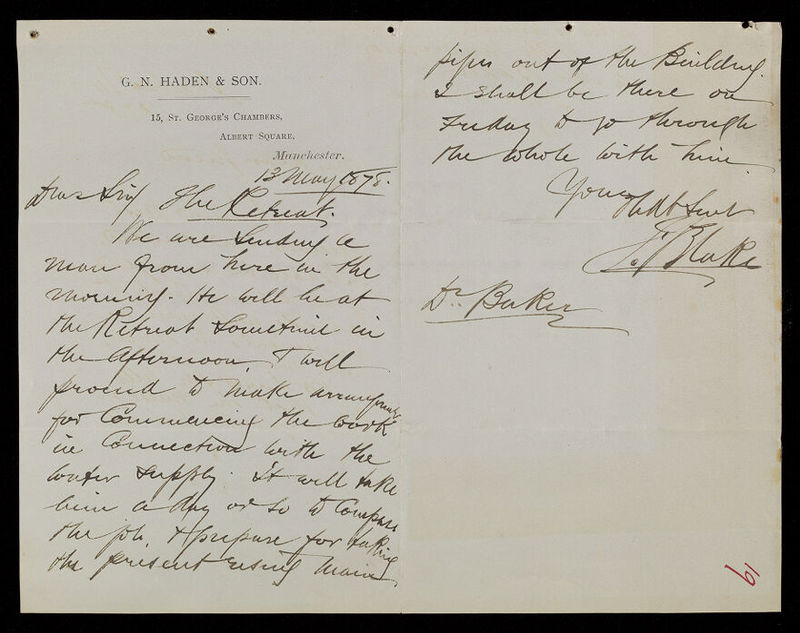 G. N. HADEN & SON.
15, ST. GEORGE'S CHAMBERS,
ALBERT SQUARE,
Manchester.
13 May 1878.
Dear Sir, The Retreat.
We are sending a
man from here in the
morning. He will be at
the Retreat sometime in
the afternoon, & will
proceed to make arrangements
for Commencing the work
in Connection with the
water supply. It will take
him a day or so to
the job, & prepare for taking
the present rising main
pipes out of the Building.
I shall be there on
Friday to go through
the whole with him.
Yours
J. Blake
Dr. Baker
19